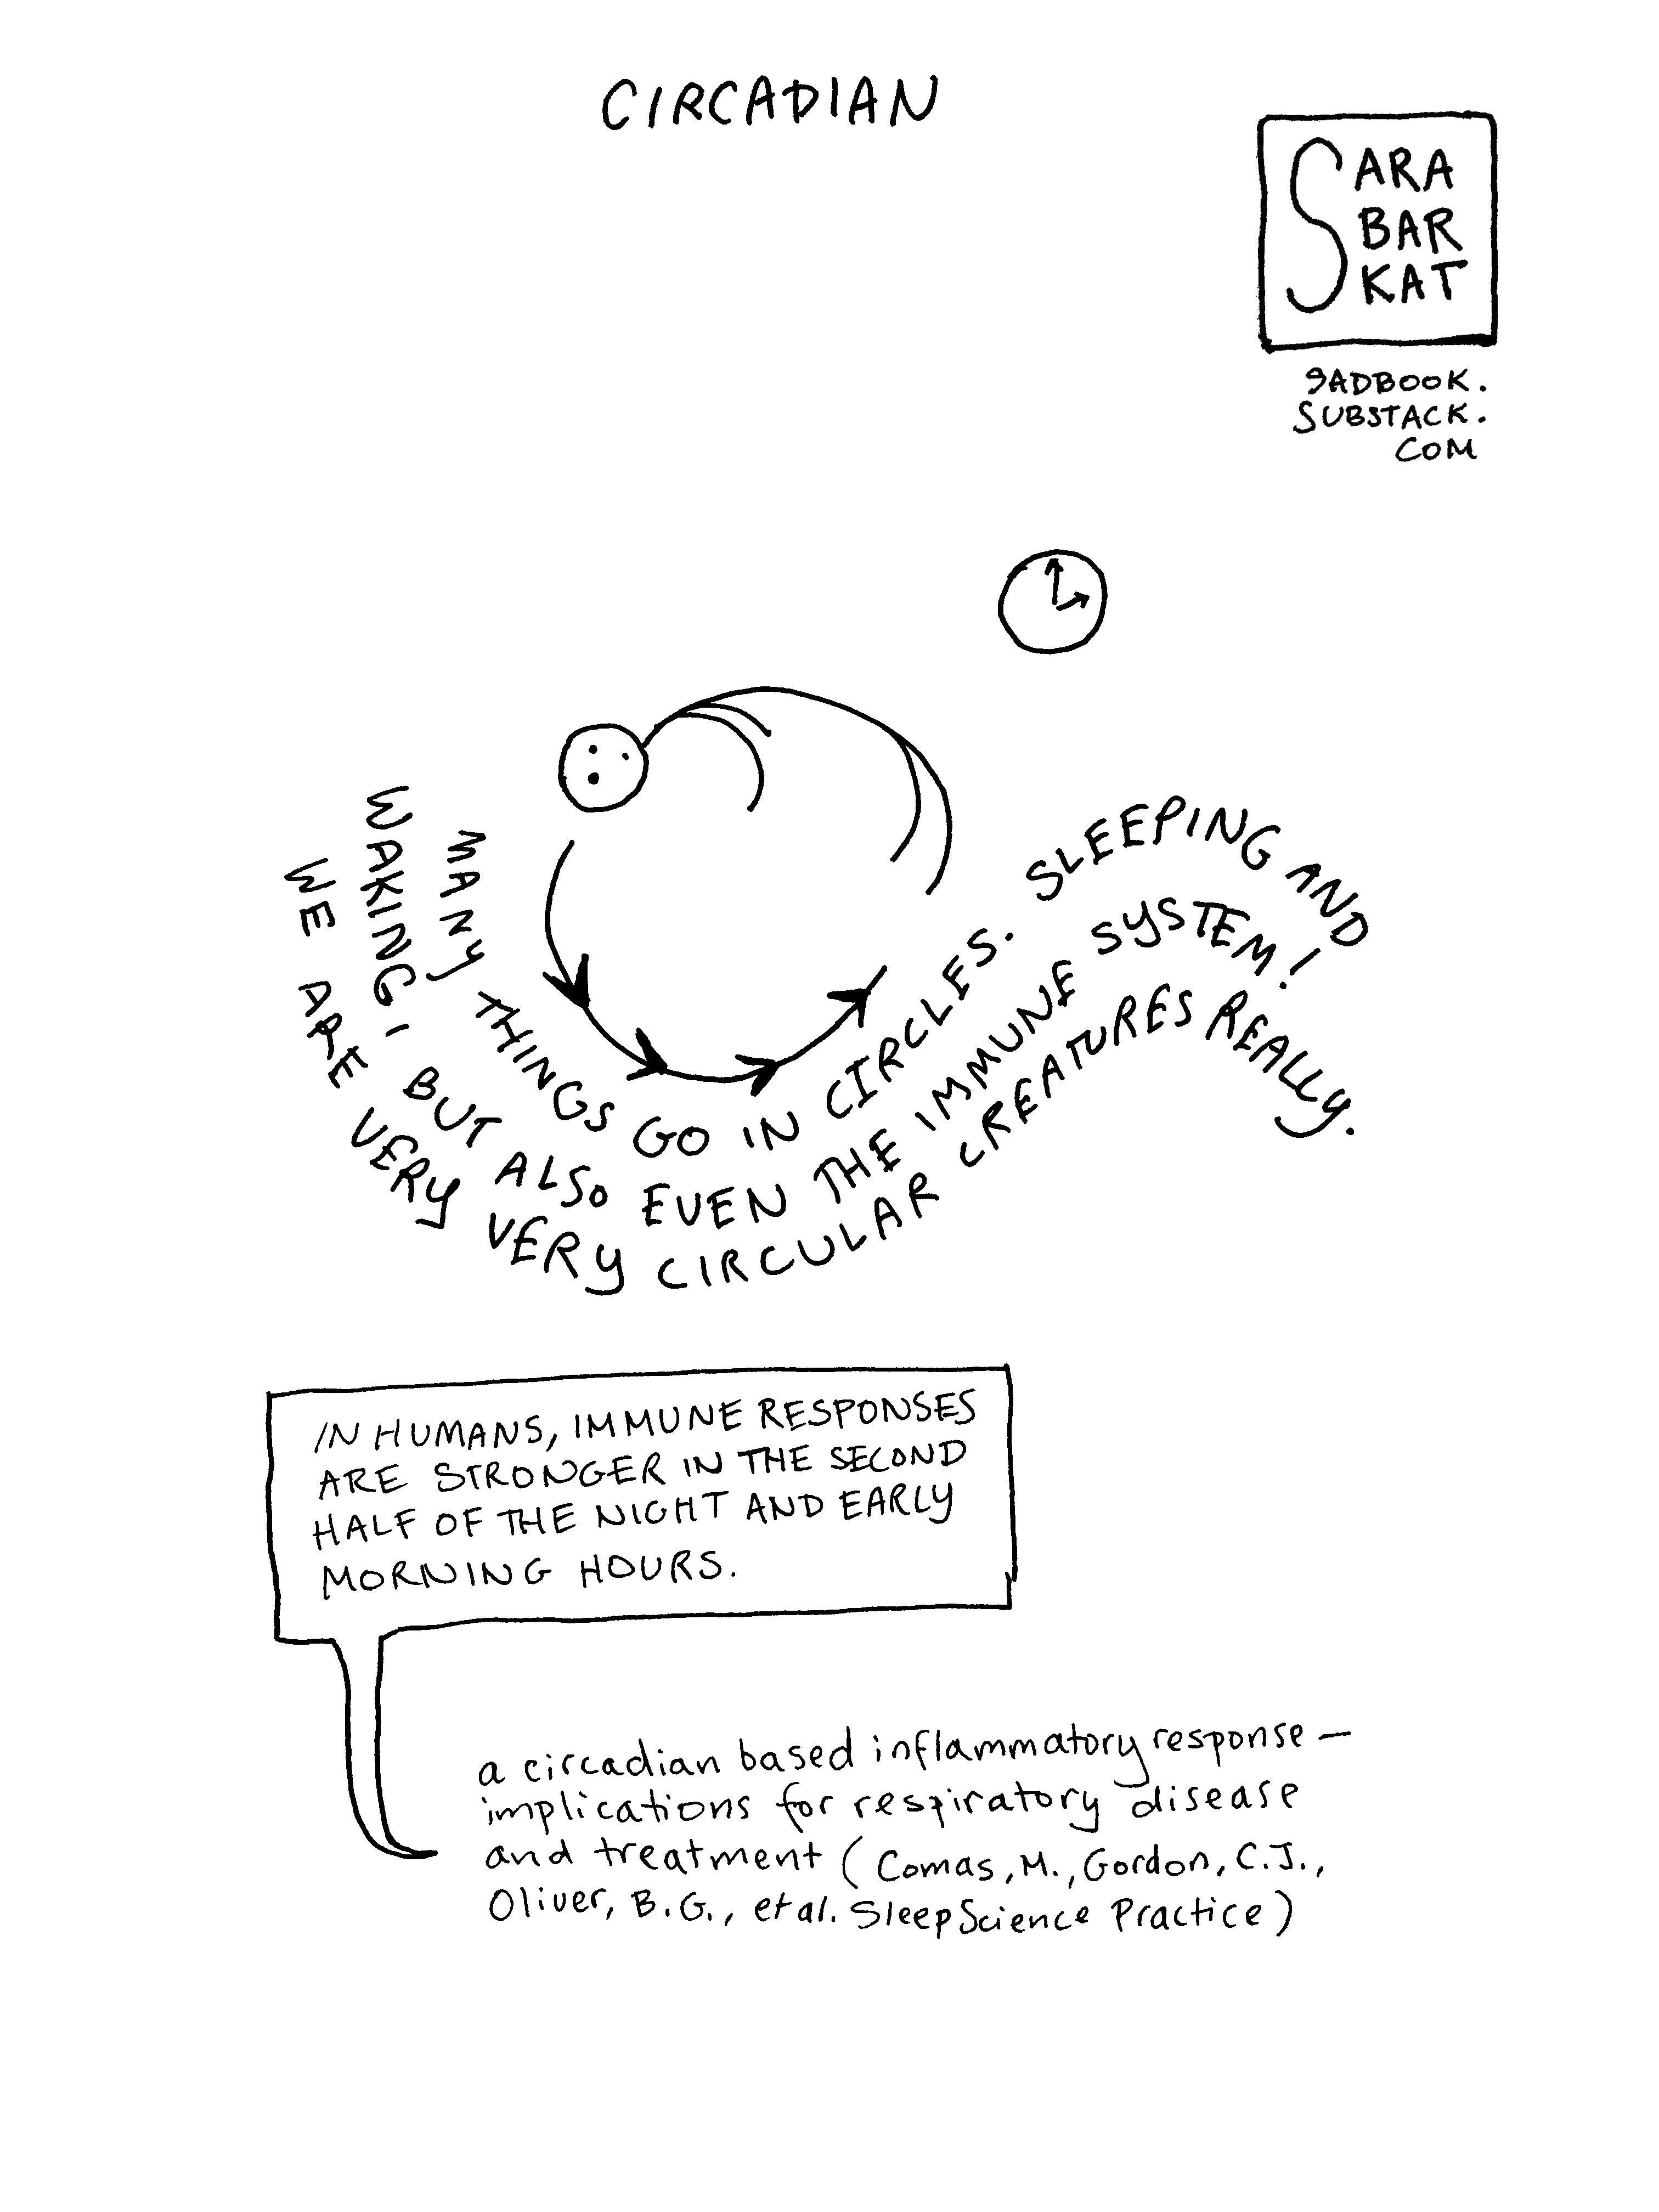 CIRCADIAN
SARA
BAR
KAT
SADBOOK.
SUBSTACK.
COM
MANY THINGS GO IN CIRCLES. SLEEPING AND
WAKING, BUT ALSO EVEN THE IMMUNE SYSTEM!
WE ARE VERY VERY CIRCULAR CREATURES REALLY.
IN HUMANS, IMMUNE RESPONSES
ARE STRONGER IN THE SECOND
HALF OF THE NIGHT AND EARLY
MORNING HOURS.
a circadian based inflammatory response —
implications for respiratory disease
and treatment (Comas, M., Gordon, C.J.,
Oliver, B.G., et al. Sleep Science Practice)